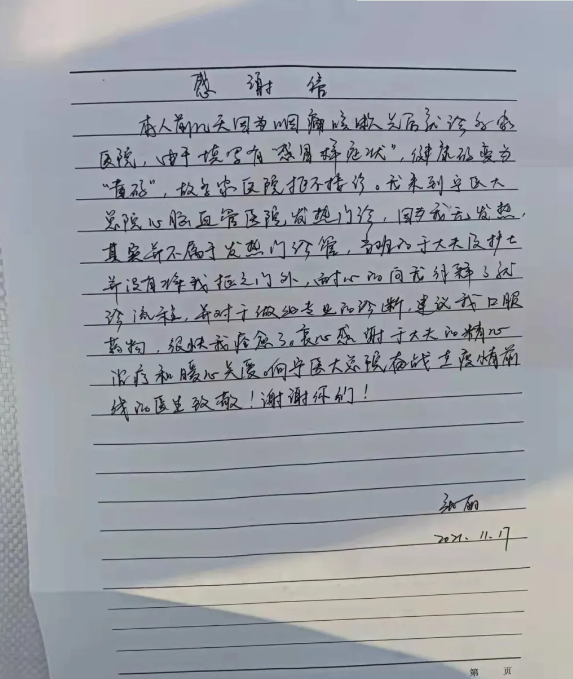 感谢信
本人前几天因为咽痛咳嗽先后就诊多家
医院，由于填写有“感冒样症状”，健康码变为
“黄码”，故各家医院拒不接诊。我来到宁医大
总院心脑血管医院发热门诊，因为我无发热，
其实并不属于发热门诊管，当班的于大夫及护士
并没有将我拒之门外，耐心的向我解释了就
诊流程，并对于做的专业的诊断，建议我口服
药物，很快我痊愈了。衷心感谢于大夫的精心
治疗和暖心关爱。向宁医大总院奋战在疫情前
线的医生致敬！谢谢你们！
丽
2021.11.17
第 页